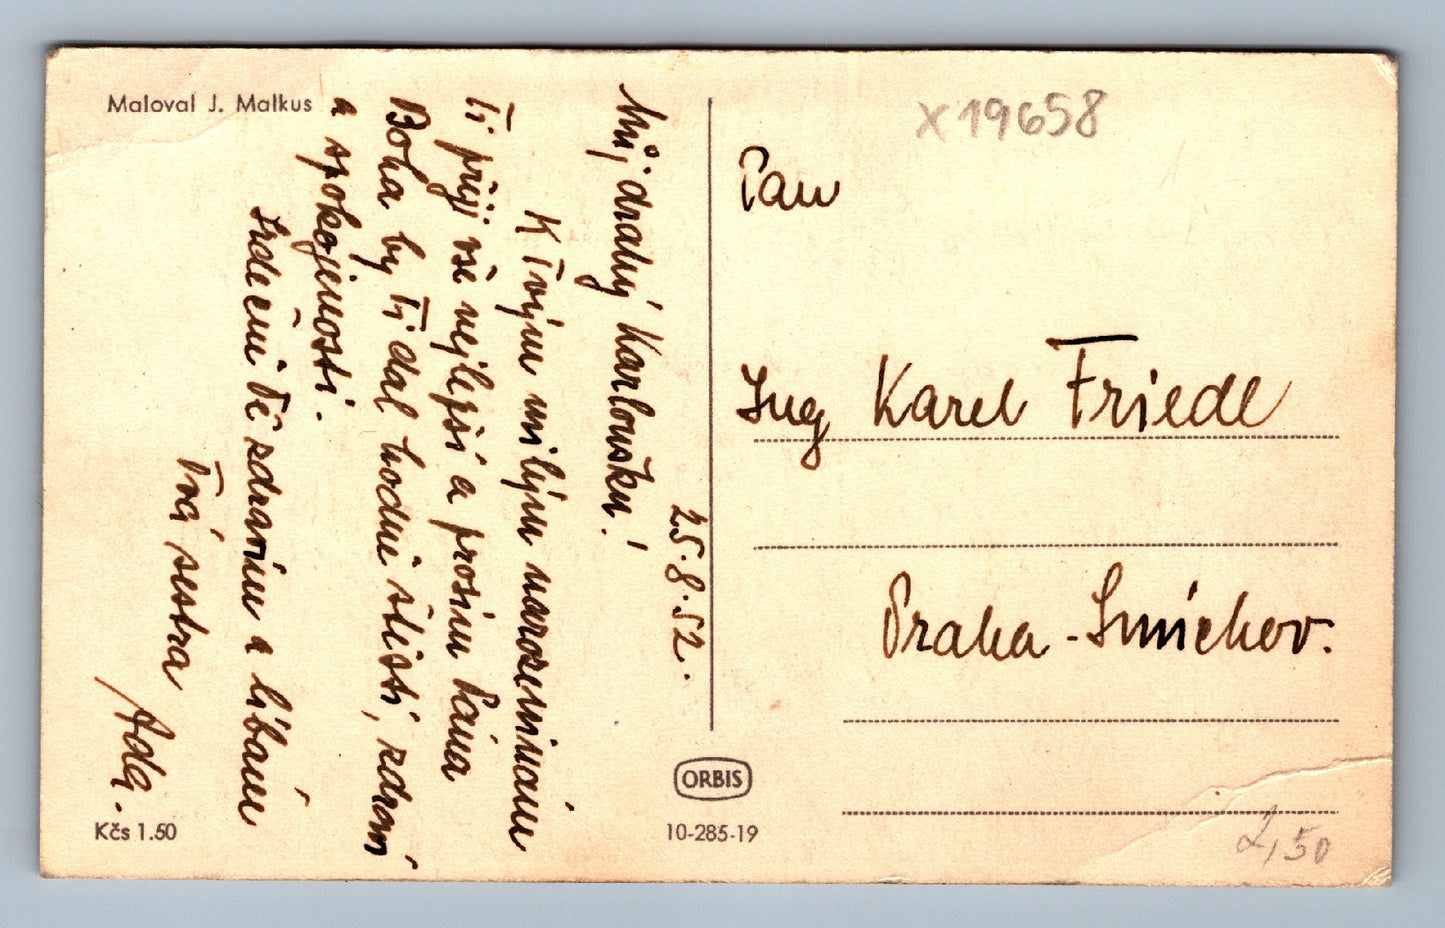 Maloval J. Malkus
25.8.52.
Můj drahý Karloušku!
K Tvým milým narozeninám
Ti přeji vše nejlepší a prosím Pána
Boha by Ti dal hodně štěstí, zdraví
a spokojenosti.
Srdečně Tě zdravím a líbám
Tvá sestra
Ada.
Kčs 1.50
ORBIS
10-285-19
X 19658
Pan
Ing Karel Friedl
Praha - Smíchov.
2,50